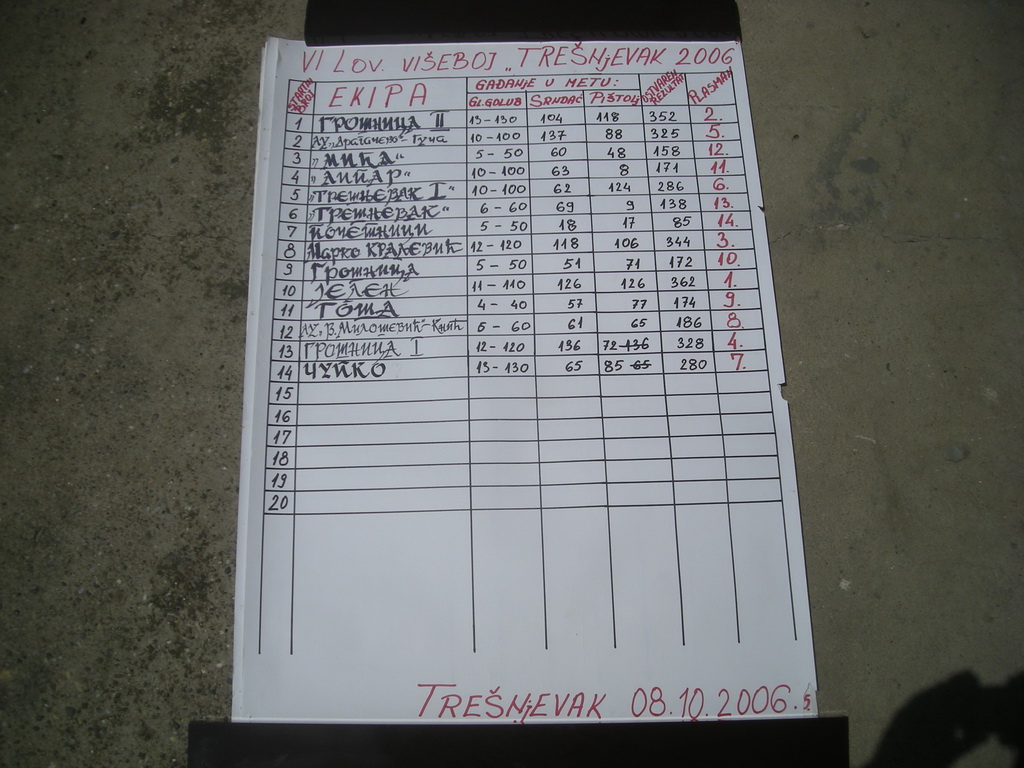 VI Lov. VIŠEBOJ „TREŠNjEVAK 2006
STARTNI BROJ EKIPA GAĐANJE U METU: OSTVAREN REZULTAT PLASMAN
GL.GOLUB SRNDAĆ PIŠTOLj
1 ГРОШНИЦА II 13-130 104 118 352 2.
2 ЛУ„Драгачево"-Гуча 10-100 137 88 325 5.
3 „МИЦА" 5-50 60 48 158 12.
4 „ЛИПАР" 10-100 63 8 171 11.
5 „ТРЕШЊЕВАК I" 10-100 62 124 286 6.
6 „ТРЕШЊЕВАК" 6-60 69 9 138 13.
7 ПОЧЕТНИЦИ 5-50 18 17 85 14.
8 Марко КРАЉЕВИЋ 12-120 118 106 344 3.
9 ГРОШНИЦА 5-50 51 71 172 10.
10 ЈЕЛЕН 11-110 126 126 362 1.
11 ТОША 4-40 57 77 174 9.
12 ЛУ„В.МИЛОШЕВИЋ"-Кнић 6-60 61 65 186 8.
13 ГРОШНИЦА I 12-120 136 72 136 328 4.
14 ЧУПКО 13-130 65 85 65 280 7.
15
16
17
18
19
20
TREŠNjEVAK 08.10.2006.